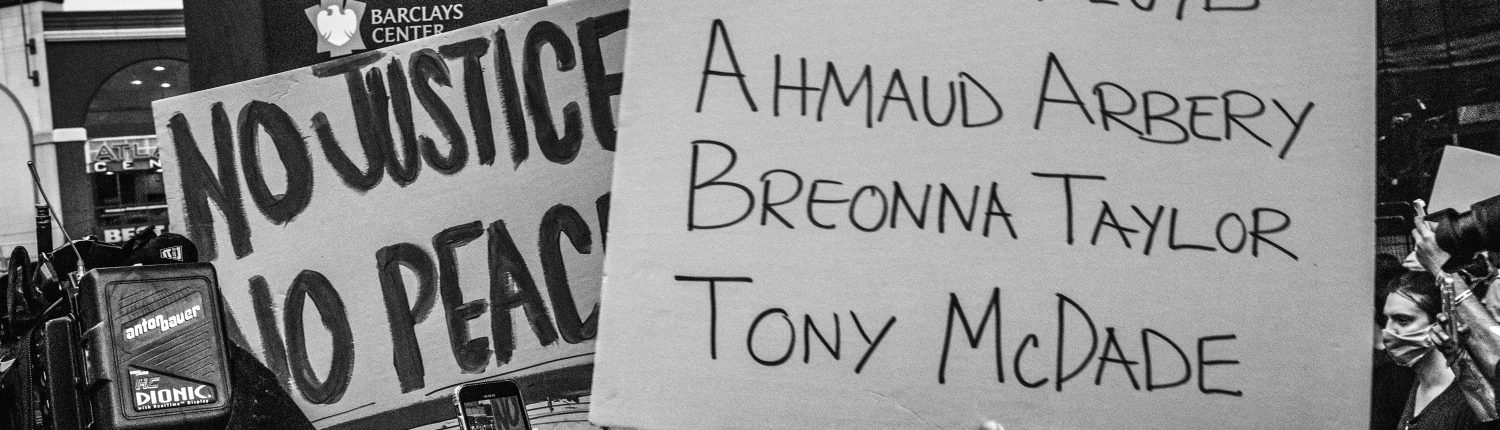 BARCLAYS
CENTER
NO JUSTICE
NO PEAC
AHMAUD ARBERY
BREONNA TAYLOR
TONY MCDADE
ATLA
CEN
BEST
antonbauer
HC
DIONIC
with RealTime™ Display
NO